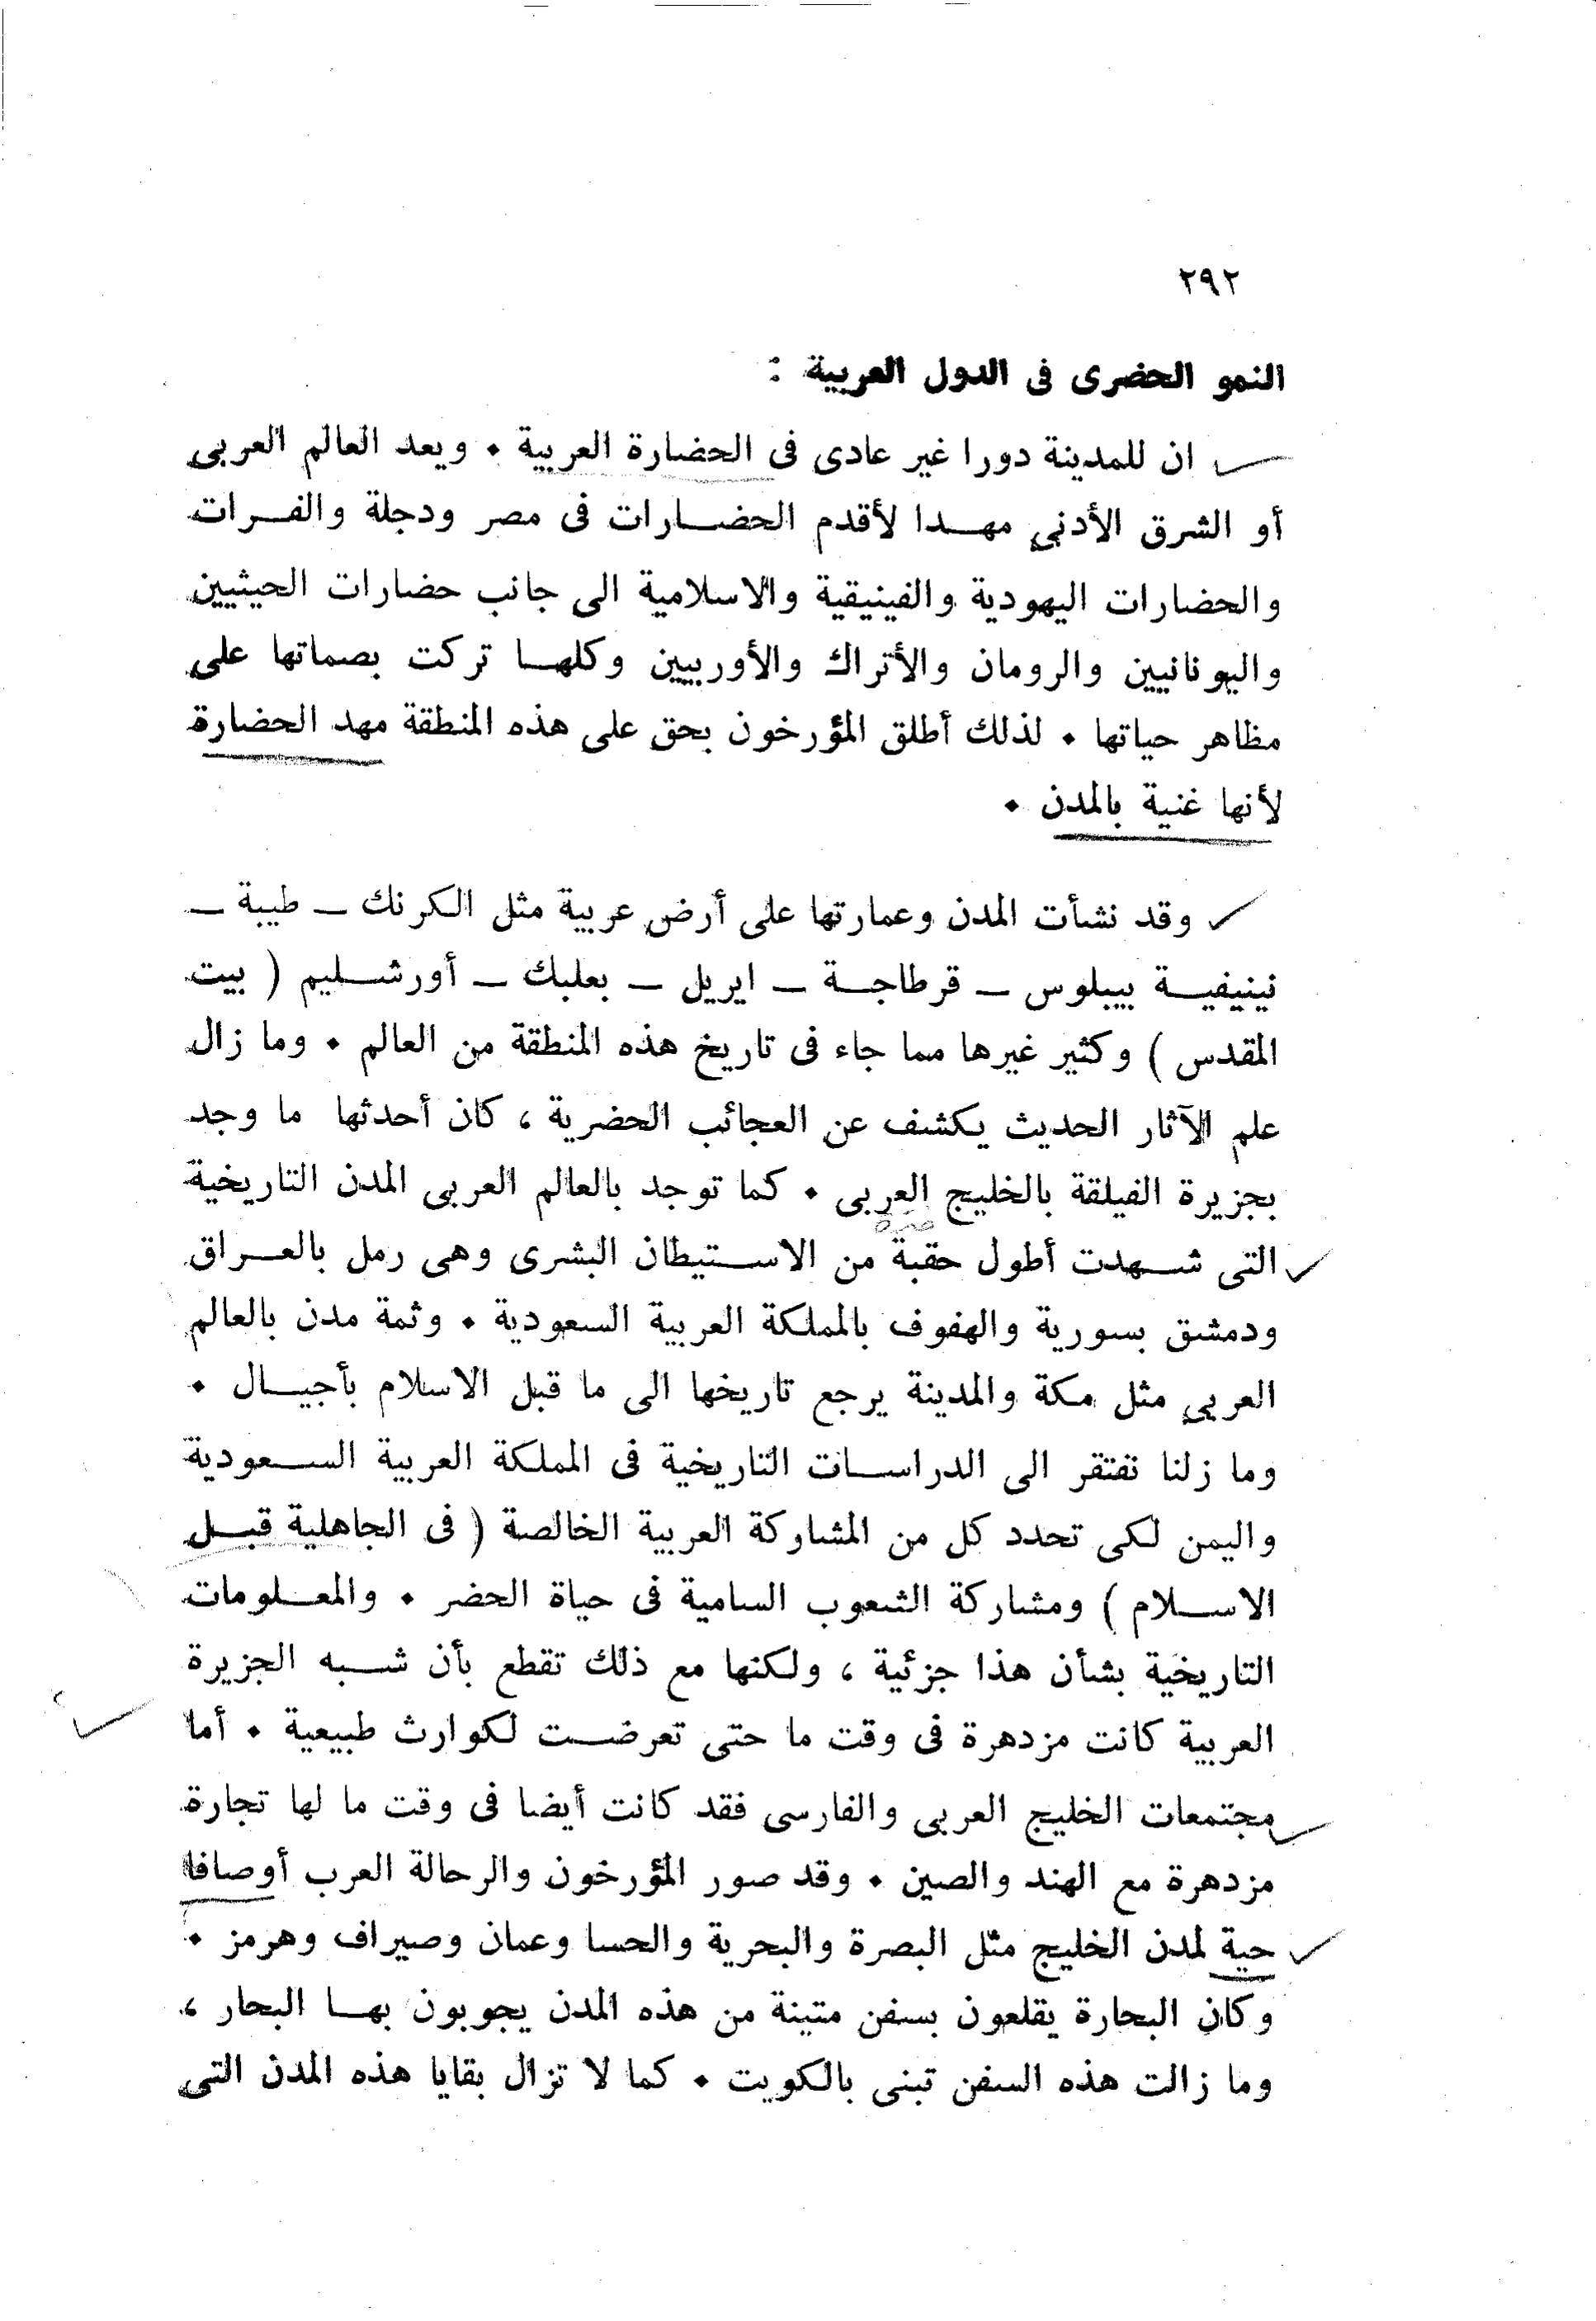 ٢٩٢
النمو الحضرى فى الدول العربية :
ان للمدينة دورا غير عادى فى الحضارة العربية ٠ ويعد العالم العربى
أو الشرق الأدنى مهدا لأقدم الحضارات فى مصر ودجلة والفرات
والحضارات اليهودية والفينيقية والاسلامية الى جانب حضارات الحيثيين
واليونانيين والرومان والأتراك والأوربيين وكلها تركت بصماتها على
مظاهر حياتها ٠ لذلك أطلق المؤرخون بحق على هذه المنطقة مهد الحضارة
لأنها غنية بالمدن ٠
وقد نشأت المدن وعمارتها على أرض عربية مثل الكرنك — طيبة —
نينيفية بيبلوس — قرطاجة — ايريل — بعلبك — أورشليم ( بيت
المقدس ) وكثير غيرها مما جاء فى تاريخ هذه المنطقة من العالم ٠ وما زال
علم الآثار الحديث يكشف عن العجائب الحضرية ، كان أحدثها ما وجد
بجزيرة الفيلقة بالخليج العربى ٠ كما توجد بالعالم العربى المدن التاريخية
التى شهدت أطول حقبة من الاستيطان البشرى وهى رمل بالعراق
ودمشق بسورية والهفوف بالمملكة العربية السعودية ٠ وثمة مدن بالعالم
العربى مثل مكة والمدينة يرجع تاريخها الى ما قبل الاسلام بأجيال ٠
وما زلنا نفتقر الى الدراسات التاريخية فى المملكة العربية السعودية
واليمن لكى تحدد كل من المشاركة العربية الخالصة ( فى الجاهلية قبل
الاسلام ) ومشاركة الشعوب السامية فى حياة الحضر ٠ والمعلومات
التاريخية بشأن هذا جزئية ، ولكنها مع ذلك تقطع بأن شبه الجزيرة
العربية كانت مزدهرة فى وقت ما حتى تعرضت لكوارث طبيعية ٠ أما
مجتمعات الخليج العربى والفارسى فقد كانت أيضا فى وقت ما لها تجارة
مزدهرة مع الهند والصين ٠ وقد صور المؤرخون والرحالة العرب أوصافا
حية لمدن الخليج مثل البصرة والبحرية والحسا وعمان وصيراف وهرمز ٠
وكان البحارة يقلعون بسفن متينة من هذه المدن يجوبون بها البحار ،
وما زالت هذه السفن تبنى بالكويت ٠ كما لا تزال بقايا هذه المدن التى